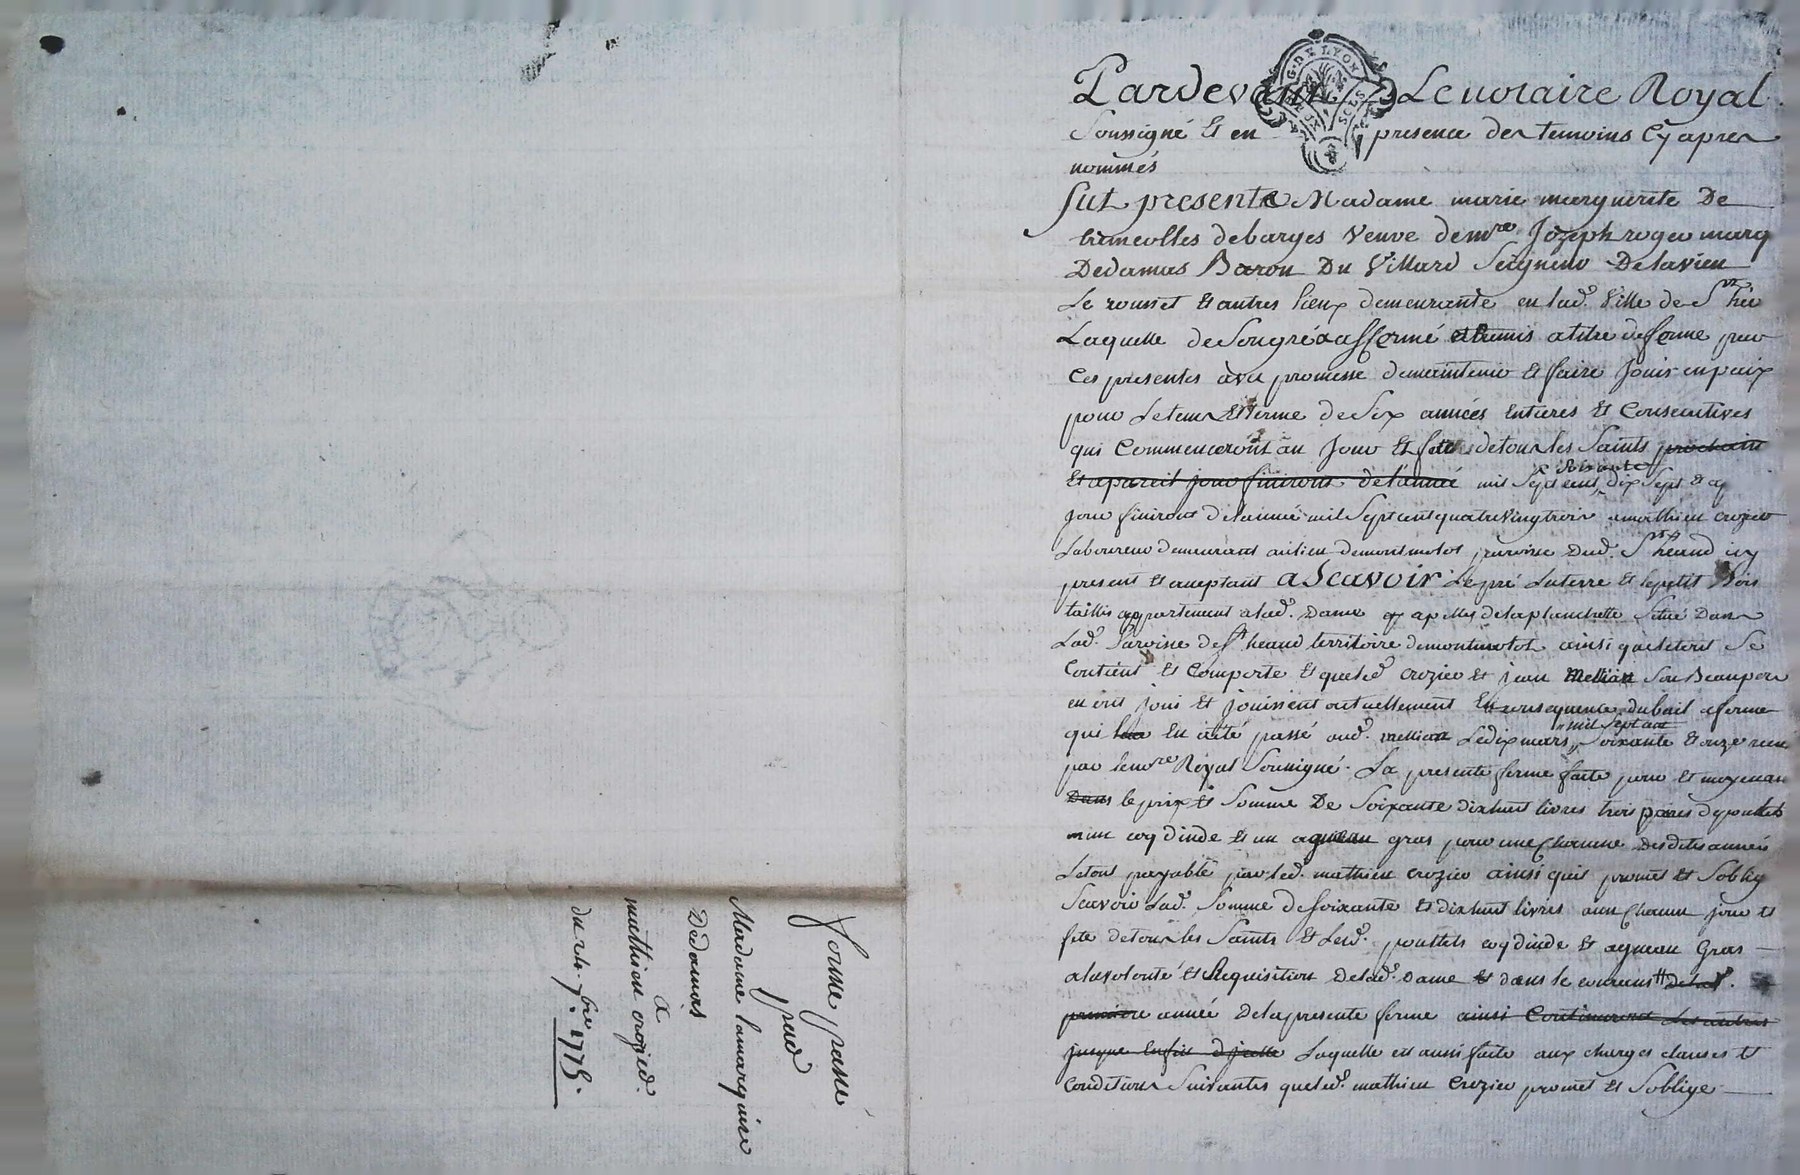 Pardevant Le notaire Royal
Soussigné Et en presence des temoins Cy apres
nommés
fut presente Madame marie marguerite De
trimeolles debarges Veuve de mre Jozeph roger marq
Dedamas Baron Du Villard Seigneur Delavieu
Le rousset Et autres lieux demeurante en lad. Ville de St
Laquelle de Son gré a affermé et remis a titre de ferme par
Ces presentes avec promesse de maintenir Et faire Jouir en paix
pour Le tems Et terme de Six années Entieres Et Consecutives
qui Commenceront au Jour Et fete de tous les Saints prochain
Et a pareil jour finiront de l'année mil Sept cent Soixante dix Sept Et
Jour finiront de l'année mil Sept cent quatre Vingt trois a mathieu crozier
Laboureur demeurant au lieu de montmolot paroisse Dud. St heand icy
present Et acceptant a Scavoir Le pré La terre Et le petit Bois
taillis appartenant a lad. Dame apellés de la planchette Situé Dans
Lad. Paroisse de St heand territoire de montmolot ainsi que le tout Se
Contient Et Comporte Et que led crozier Et jean Mellian Son Beaupere
en ont joui Et jouissent actuellement En consequence du bail a ferme
qui En a été passé aud. mellian Le dix mars mil Sept cent Soixante Et onze recu
par le nre Royal Soussigné. La presente ferme faite pour Et moyenan
Dans le prix Et Somme De Soixante dix huit livres trois paires de poullets
un coq dinde Et un agneau gras pour une Chacune Desdites années
Le tout payable par led. mathieu crozier ainsi quil promet Et Soblig
Scavoir Lad. Somme de Soixante Et dix huit livres a un Chacun jour Et
fete de tous les Saints Et Lesd. poullets coq dinde Et agneau Gras
a la volonté Et Requisition De lad. Dame Et dans le courant de la
premiere année De la presente ferme ainsi Continueront Les autres
jusque En fin dicelle Laquelle est aussi faite aux charges clauses Et
Conditions Suivantes que led. mathieu Crozier promet Et Soblige
ferme passé
par
Madame la marquise
Dedamas
a
mathieu crozier.
du 7bre 1775.